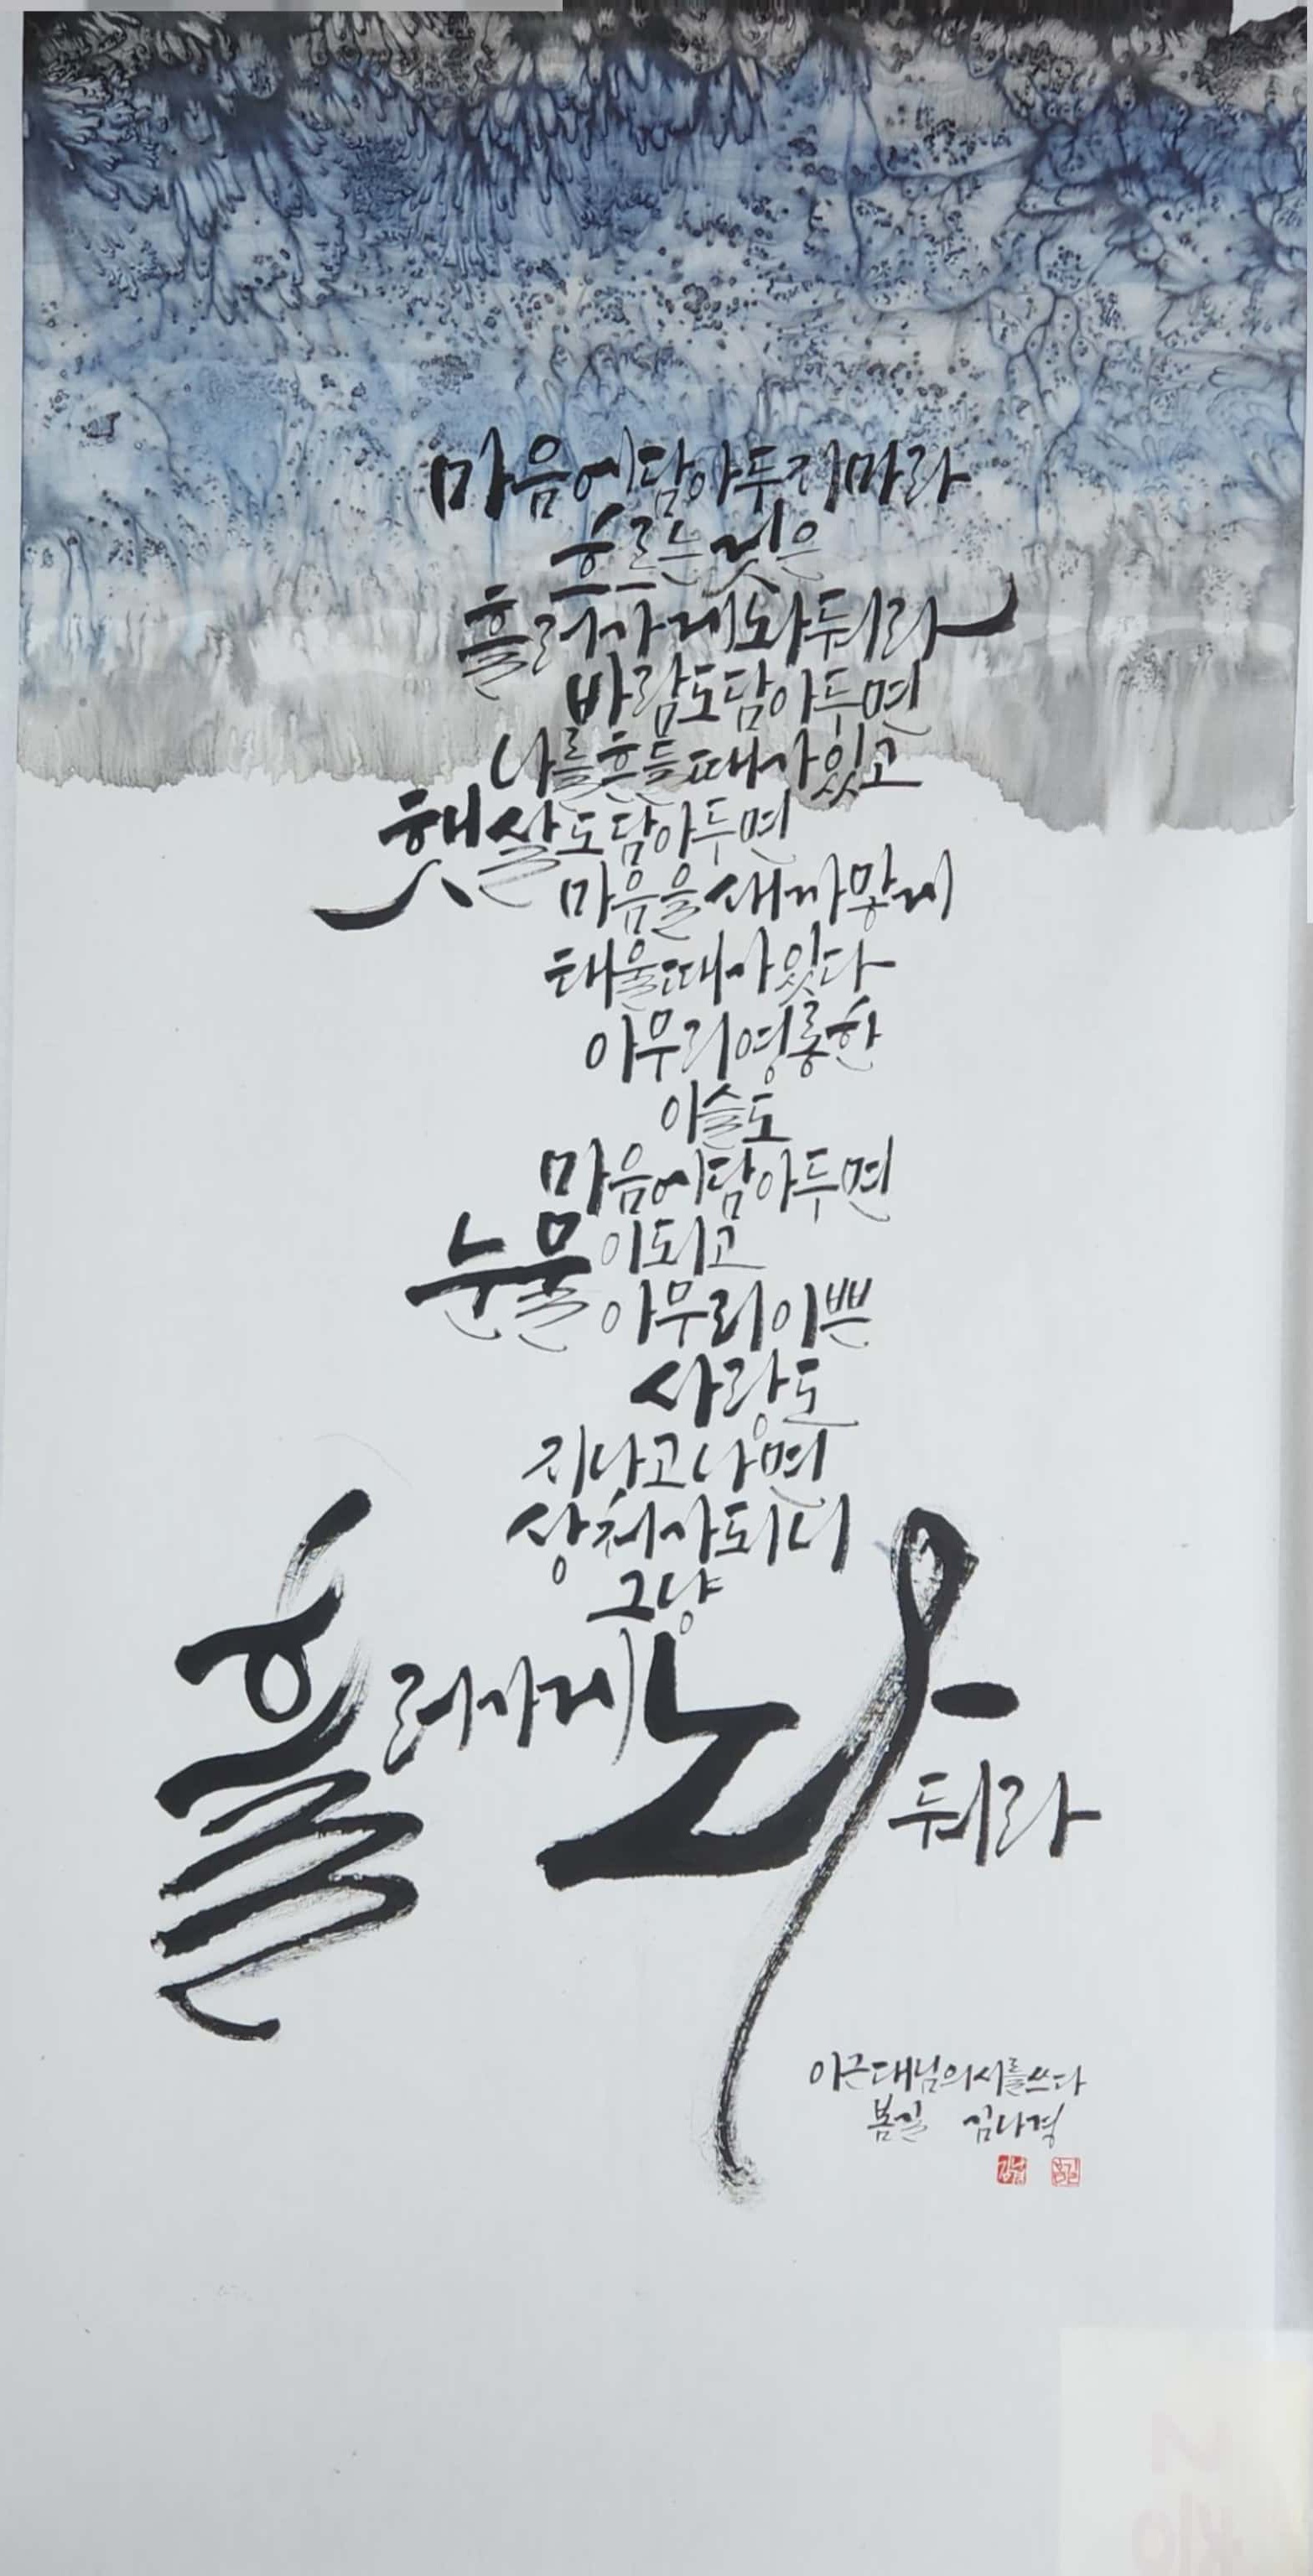 마음에 담아두지 마라
흐르는 것은
흘러가게 놔 둬라
바람도 담아두면
나를 흔들 때가 있고
햇살도 담아두면
마음을 새까맣게
태울 때가 있다
아무리 영롱한
이슬도
마음에 담아두면
눈물이 되고
아무리 이쁜
사랑도
지나고 나면
상처가 되니
그냥
흘러가게 놔 둬라
이근대님의 시를 쓰다
봄길 김나경